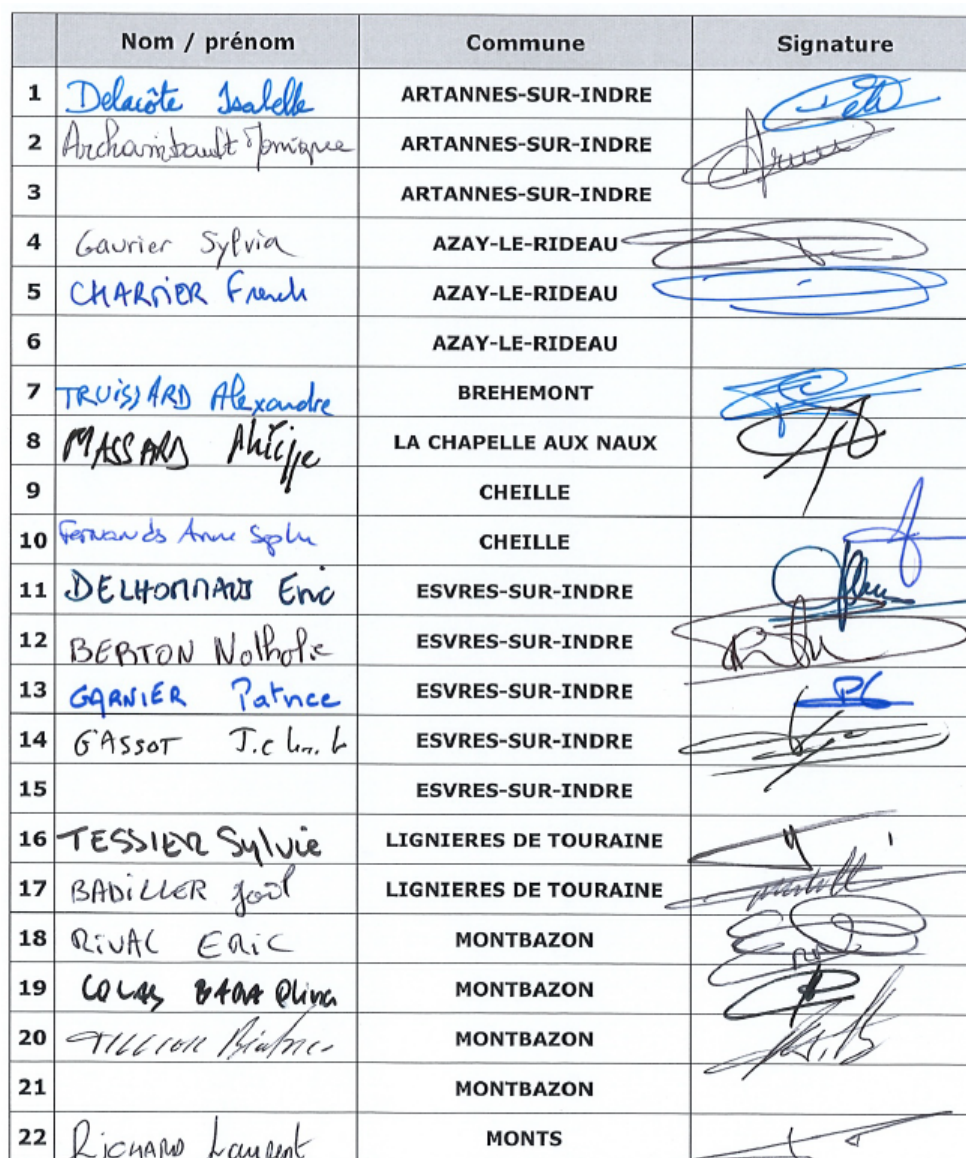 Nom / prénom Commune Signature
1 Delacôte Isabelle ARTANNES-SUR-INDRE
2 Archambault Monique ARTANNES-SUR-INDRE
3 ARTANNES-SUR-INDRE
4 Gaurier Sylvia AZAY-LE-RIDEAU
5 CHARTIER Franck AZAY-LE-RIDEAU
6 AZAY-LE-RIDEAU
7 TRUISSARD Alexandre BREHEMONT
8 MASSARD Philippe LA CHAPELLE AUX NAUX
9 CHEILLE
10 Fernandes Anne Sophie CHEILLE
11 DELHOMMAIS Eric ESVRES-SUR-INDRE
12 BERTON Nathalie ESVRES-SUR-INDRE
13 GARNIER Patrice ESVRES-SUR-INDRE
14 GASSOT ESVRES-SUR-INDRE
15 ESVRES-SUR-INDRE
16 TESSIER Sylvie LIGNIERES DE TOURAINE
17 BADILLER Joël LIGNIERES DE TOURAINE
18 RIVAL ERIC MONTBAZON
19 COLAS MONTBAZON
20 Béatrice MONTBAZON
21 MONTBAZON
22 RICHARD Laurent MONTS